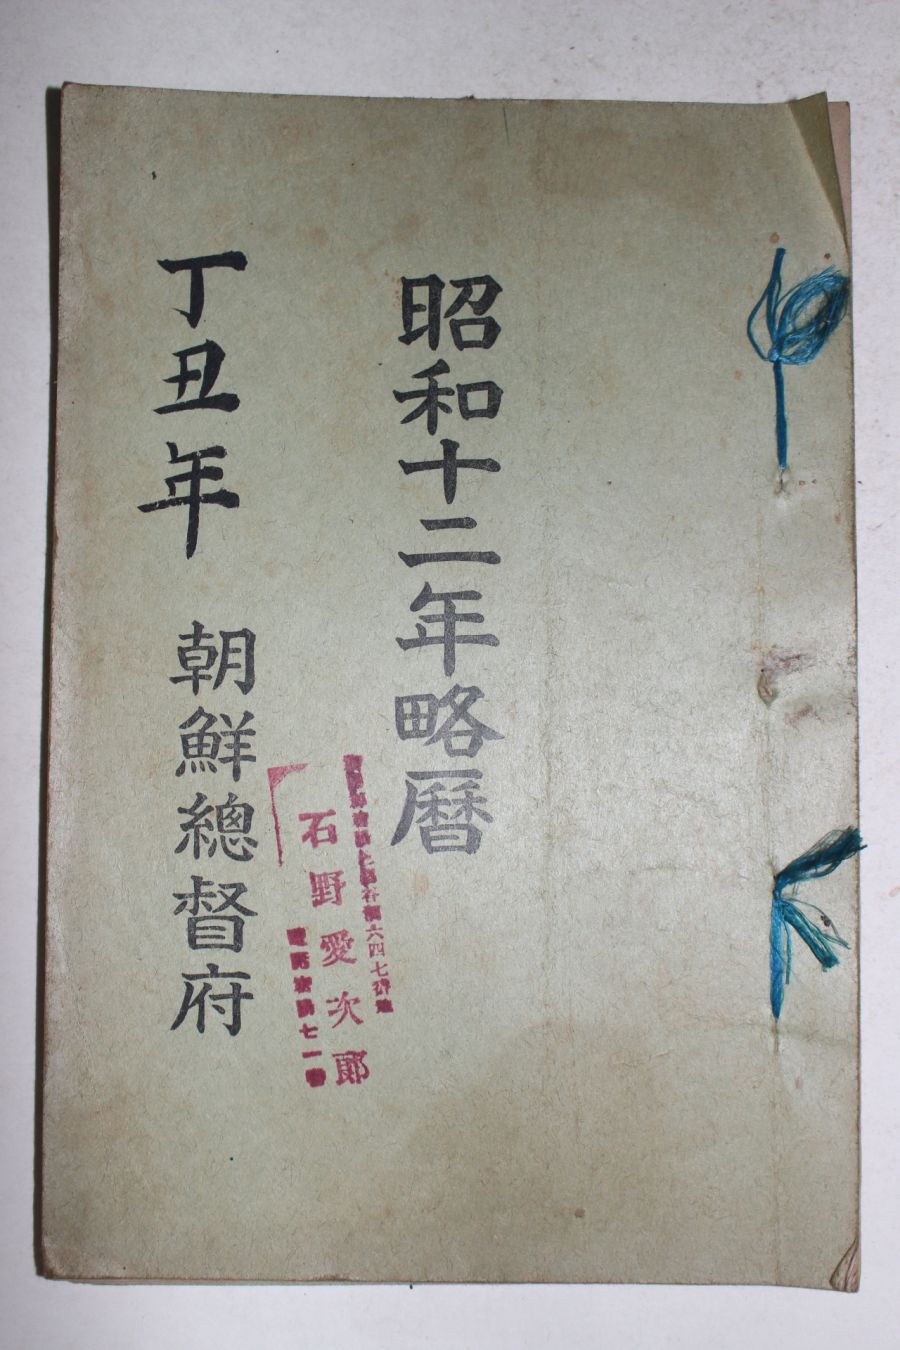 昭和十二年略曆
六四七番地
石野愛次郎
七一番
丁丑年 朝鮮總督府